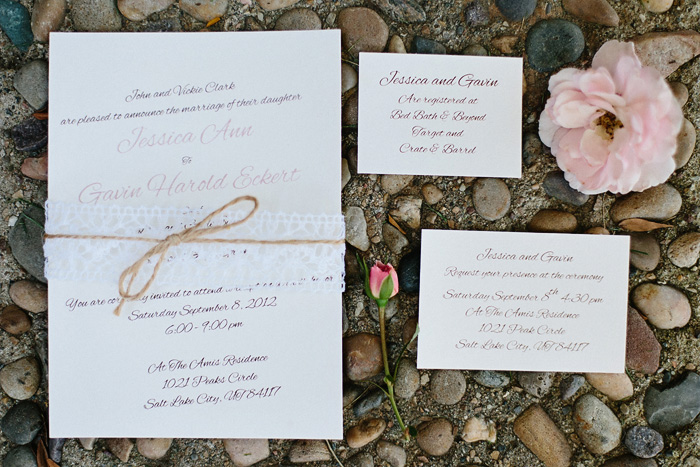 John and Vickie Clark
are pleased to announce the marriage of their daughter
Jessica Ann
&
Gavin Harold Eckert
You are invited to attend
Saturday September 8, 2012
6:00 - 9:00 pm
At The Amis Residence
1021 Peaks Circle
Salt Lake City, UT 84117
Jessica and Gavin
Are registered at
Bed Bath & Beyond
Target and
Crate & Barrel
Jessica and Gavin
Request your presence at the ceremony
Saturday September 8th 4:30 pm
At The Amis Residence
1021 Peak Circle
Salt Lake City, UT 84117